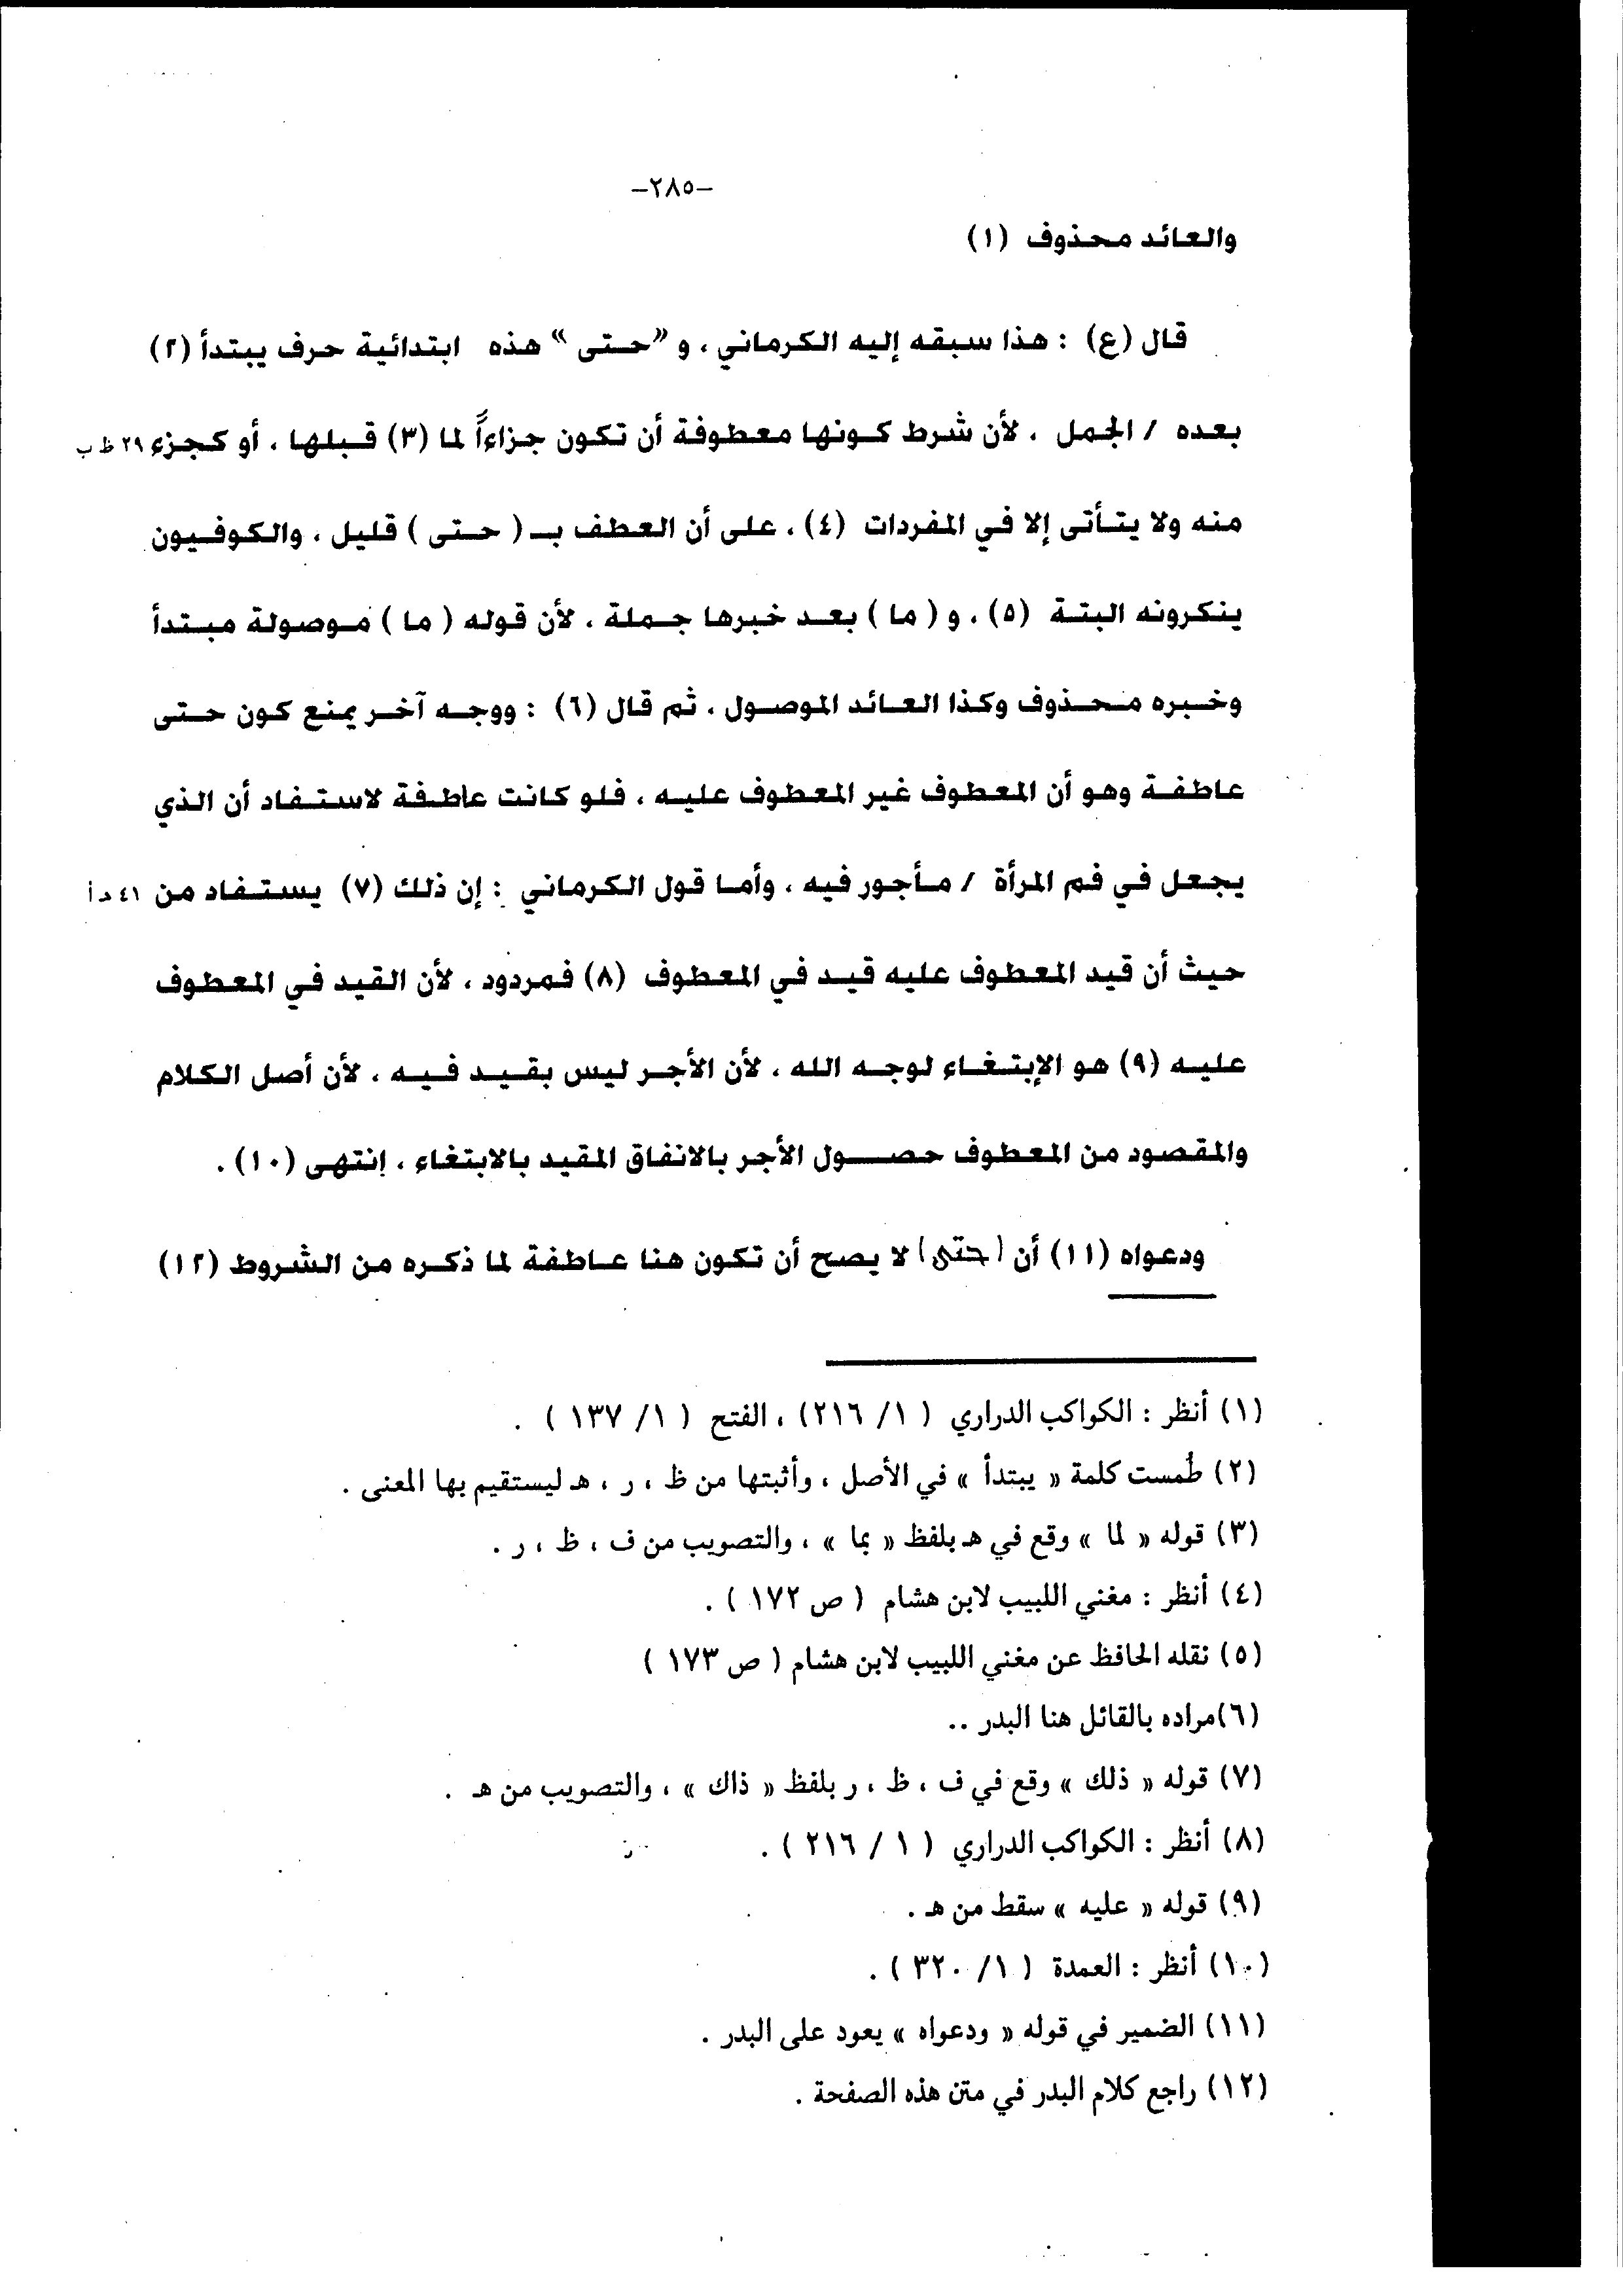 -٢٨٥-
والعائد محذوف (١)
قال (ع) : هذا سبقه إليه الكرماني ، و "حتى" هذه ابتدائية حرف يبتدأ (٢)
بعده / الجمل ، لأن شرط كونها معطوفة أن تكون جزاءاً لما (٣) قبلها ، أو كجزء ٢٩ ظ ب
منه ولا يتأتى إلا في المفردات (٤) ، على أن العطف بـ ( حتى ) قليل ، والكوفيون
ينكرونه البتة (٥) ، و ( ما ) بعد خبرها جملة ، لأن قوله ( ما ) موصولة مبتدأ
وخبره محذوف وكذا العائد الموصول ، ثم قال (٦) : ووجه آخر يمنع كون حتى
عاطفة وهو أن المعطوف غير المعطوف عليه ، فلو كانت عاطفة لاستفاد أن الذي
يجعل في فم المرأة / مأجور فيه ، وأما قول الكرماني : إن ذلك (٧) يستفاد من ٤١ د أ
حيث أن قيد المعطوف عليه قيد في المعطوف (٨) فمردود ، لأن القيد في المعطوف
عليه (٩) هو الإبتغاء لوجه الله ، لأن الأجر ليس بقيد فيه ، لأن أصل الكلام
والمقصود من المعطوف حصول الأجر بالانفاق المقيد بالابتغاء ، إنتهى (١٠) .
ودعواه (١١) أن (حتى) لا يصح أن تكون هنا عاطفة لما ذكره من الشروط (١٢)
(١) أنظر : الكواكب الدراري ( ١/ ٢١٦) ، الفتح ( ١/ ١٣٧ ) .
(٢) طُمست كلمة « يبتدأ » في الأصل ، وأثبتها من ظ ، ر ، هـ ليستقيم بها المعنى .
(٣) قوله « لما » وقع في هـ بلفظ « بما » ، والتصويب من ف ، ظ ، ر .
(٤) أنظر : مغني اللبيب لابن هشام ( ص ١٧٢ ) .
(٥) نقله الحافظ عن مغني اللبيب لابن هشام ( ص ١٧٣ )
(٦)مراده بالقائل هنا البدر ..
(٧) قوله « ذلك » وقع في ف ، ظ ، ر بلفظ « ذاك » ، والتصويب من هـ .
(٨) أنظر : الكواكب الدراري ( ١ / ٢١٦ ) .
(٩) قوله « عليه » سقط من هـ .
(١٠) أنظر : العمدة ( ١/ ٣٢٠ ) .
(١١) الضمير في قوله « ودعواه » يعود على البدر .
(١٢) راجع كلام البدر في متن هذه الصفحة .